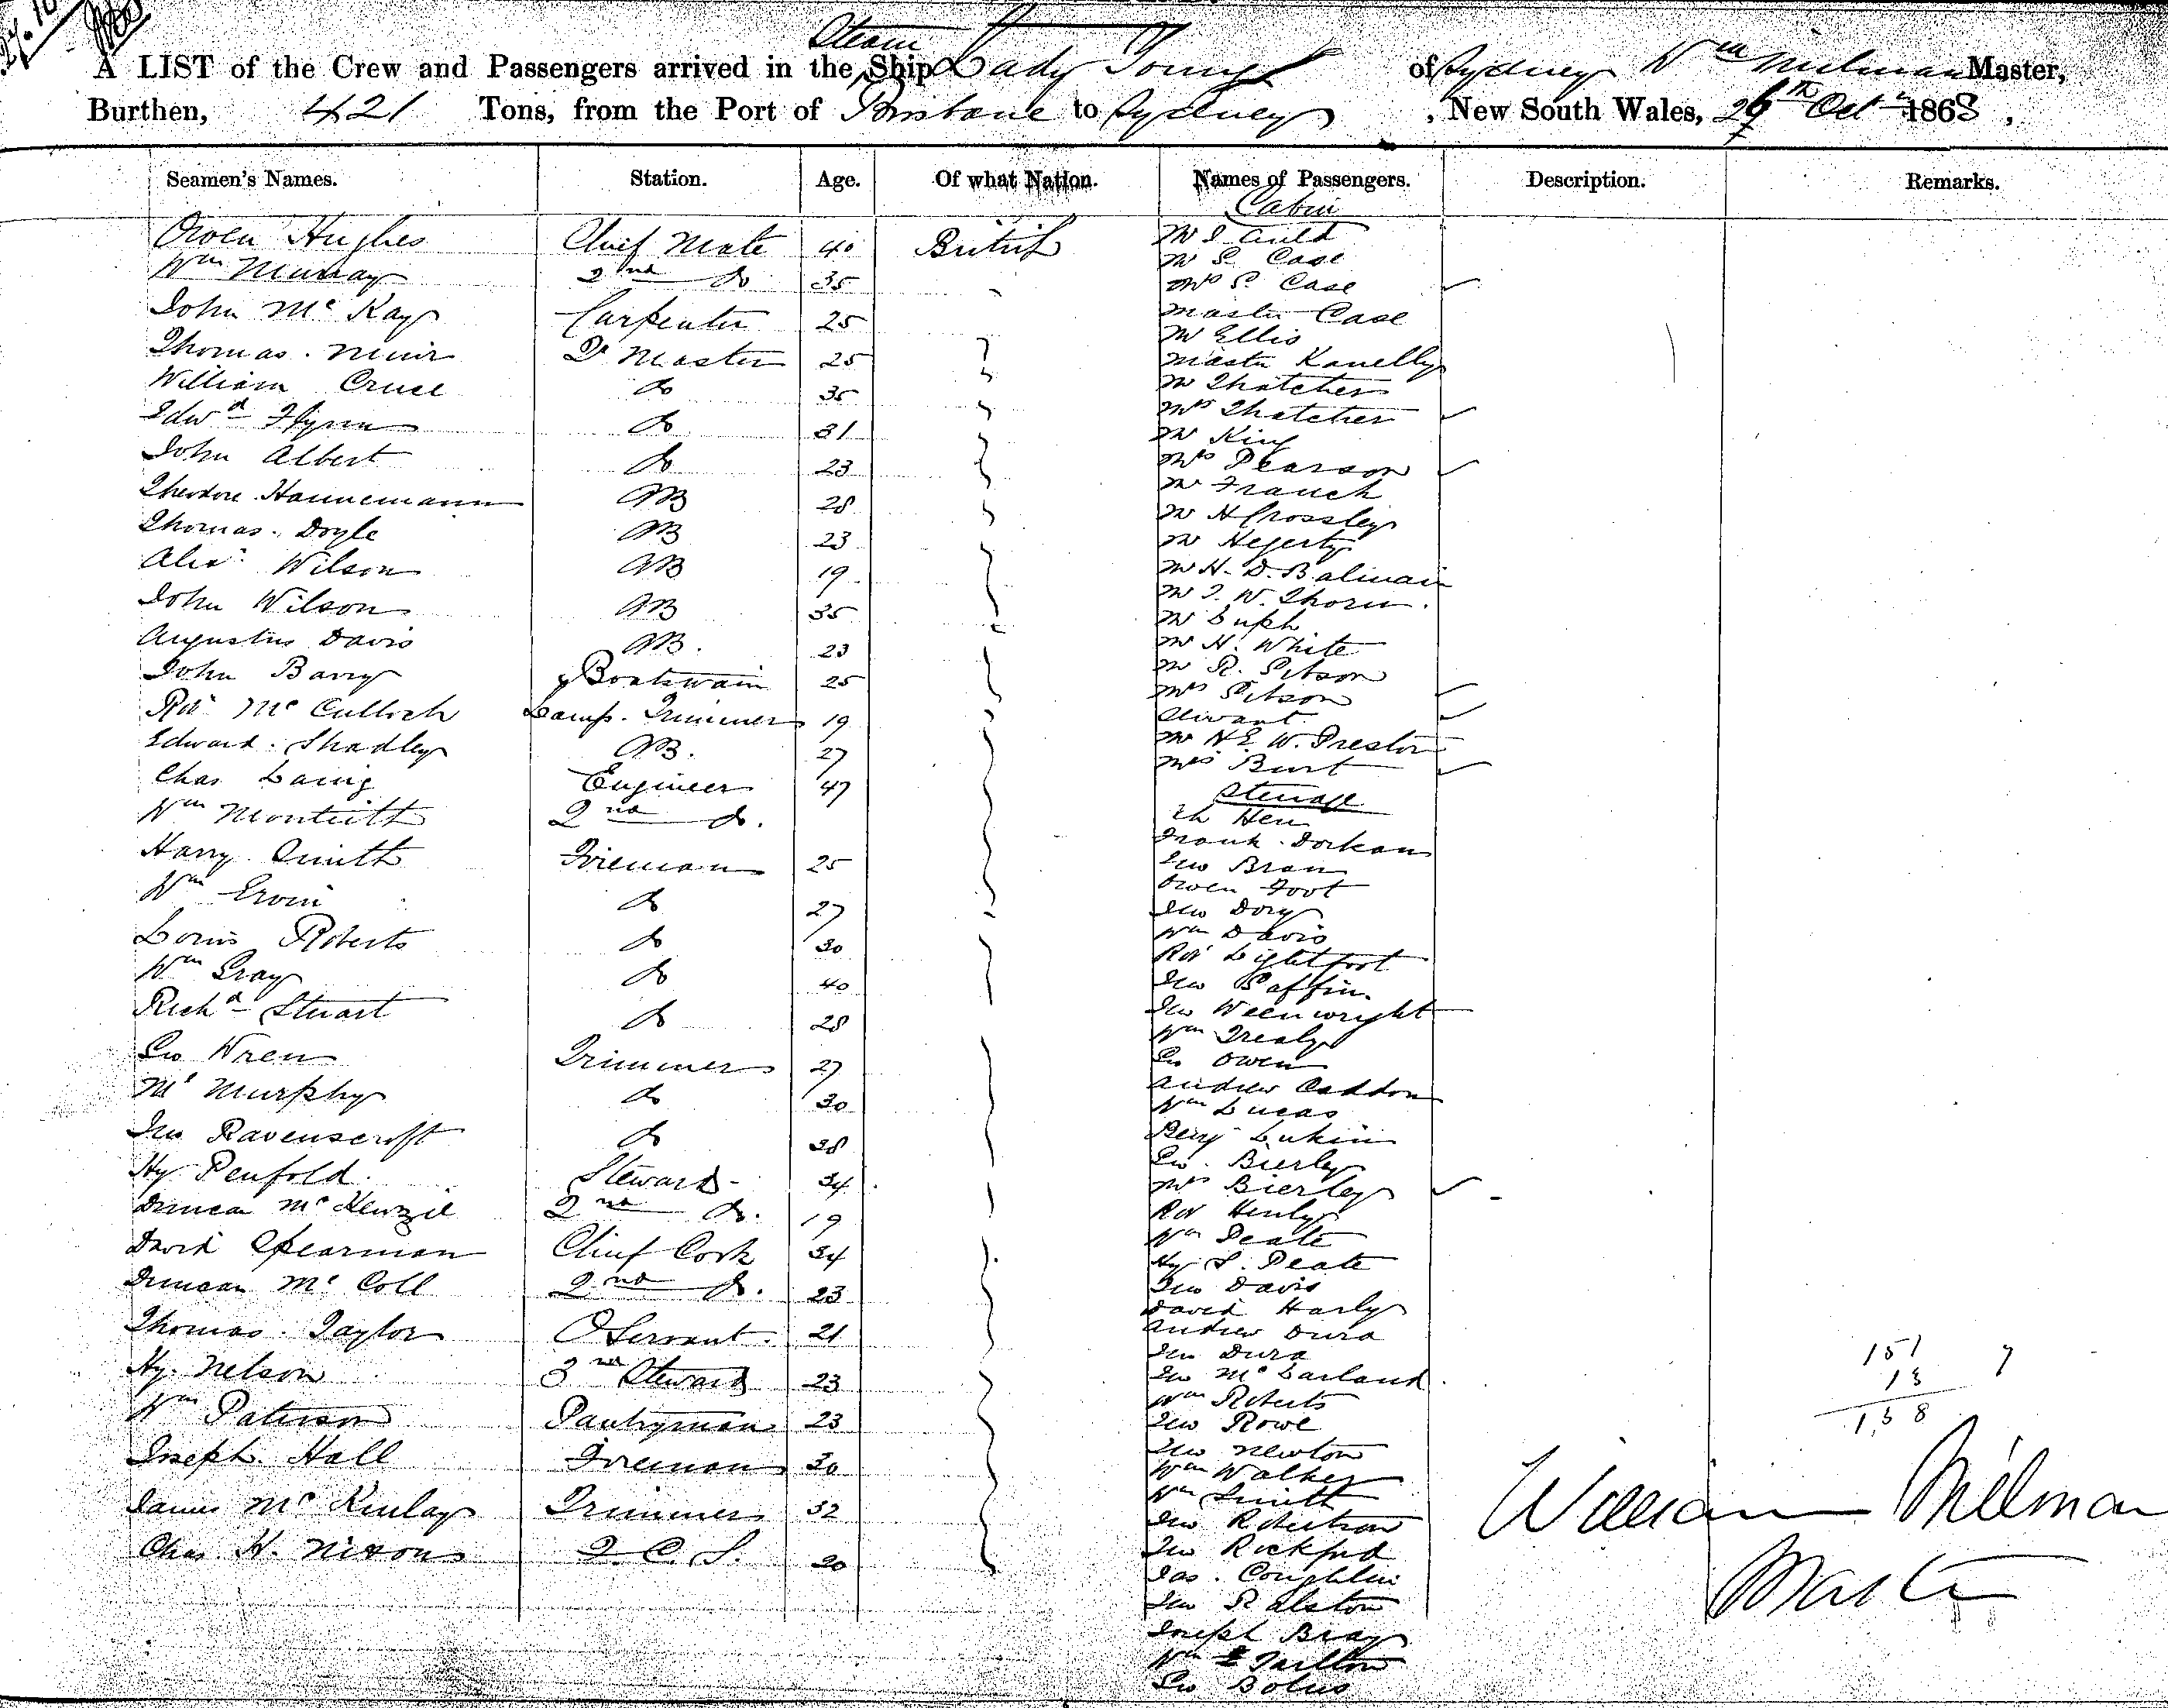 Steam
A LIST of the Crew and Passengers arrived in the Ship Lady Young of Sydney Wm Milman Master,
Burthen, 421 Tons, from the Port of Brisbane to Sydney , New South Wales, Oct 1868 ,
Seamen's Names. Station. Age. Of what Nation. Names of Passengers. Description. Remarks.
Cabin
Owen Hughes Chief Mate 40 British
Wm Murray 2nd Do 35
John Mc Kay Carpenter 25
Thomas Muir Qr Master 25
William Cruce Do 35
Edwd Flynn Do 31
John Albert Do 23
Theodore Hannemann AB 28
Thomas Doyle AB 23
Alexr Wilson AB 19
John Wilson AB 35
Augustus Davis AB. 23
John Barry Boatswain 25
Robt Mc Culloch Lamp Trimmer 19
Edward Shadley AB. 27
Chas Laing Engineer 47
Wm Monteith 2nd Do.
Harry Smith Fireman 25
Wm Ervin Do 27
Louis Roberts Do 30
Wm Gray Do 40
Richd Stuart Do 28
Geo Wren Trimmer 27
Ml Murphy Do 30
Jno Ravenscroft Do 38
Hy Penfold Steward 34
Duncan Mc Kenzie 2nd Do. 19
David Spearman Chief Cook 34
Duncan Mc Coll 2nd Do. 23
Thomas Taylor O Servant 21
Hy Nelson 3rd Steward 23
Wm Paterson Pantryman 23
Joseph Hall Fireman 30
James Mc Kinlay Trimmer 32
Chas H. Nixon 20
Mr J Auld
Mr S Case
Mrs S Case
Master Case
Mr Ellis
Master Kanelly
Mr Thatcher
Mrs Thatcher
Mr King
Mrs Pearson
Mr Franck
Mr H Crossley
Mr Hegerty
Mr H. D. Balmain
Mr T. W. Thorn
Mr
Mr H. White
Mr R. Sitson
Mrs Sitson
Servant
Mr H E W. Preston
Mrs Burt
Steerage
Ah Hen
Frank Dorkan
Jno Bran
Owen Foot
Jno Dory
Wm Davis
Robt Lightfoot
Jno Baffin
Jno Weenwright
Wm Trealy
Geo Owen
Andrew Caddon
Wm Lucas
Benj Lukin
Geo. Bierley
Mrs Bierley
Robt Henly
Wm Peate
Hy S. Peate
Jno Davis
David Harly
Andrew Dura
Jno Dura
Jno Mc Farland
Wm Roberts
Jno Rowe
Jno Newton
Wm Walker
Wm Smith
Jno Robertson
Jno Rockford
Jas. Coughlin
Jno Ralston
Joseph Bray
Wm
Geo Bolus
151 7
158
William Milman
Master